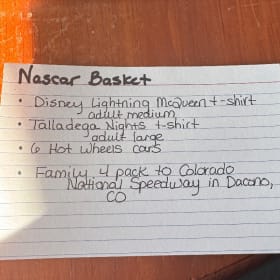 Nascar Basket
• Disney Lightning McQueen t-shirt
adult medium
• Talladega Nights t-shirt
adult large
• 6 Hot Wheels cars
• Family 4 pack to Colorado
National Speedway in Dacono,
CO